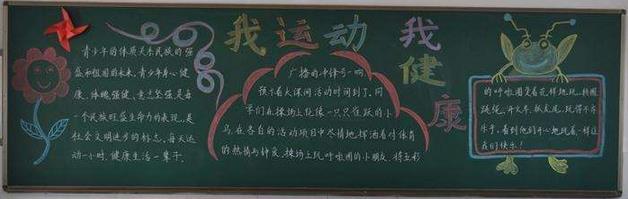 我运动 我健康
青少年的体质关系民族的强
盛和祖国的未来。青少年身心健
康、体魄强健、意志坚强是每
一个民族旺盛生命力的表现,是
社会文明进步的标志。每天运
动一小时,健康生活一辈子。
广播的冲锋号一响,
预示着大课间活动时间到了,同
学们在操场上犹像一只只征跃的小
鸟,在各自的活动项目中尽情地挥洒着对体育
的热情与钟爱。操场上玩呼啦圈的小朋友,将五彩
的呼啦圈变着花样地玩,转圈
跳绳,开火车,抓尾尾,玩得不亦
乐乎,看到他们开心地玩着一样让
我们快乐!